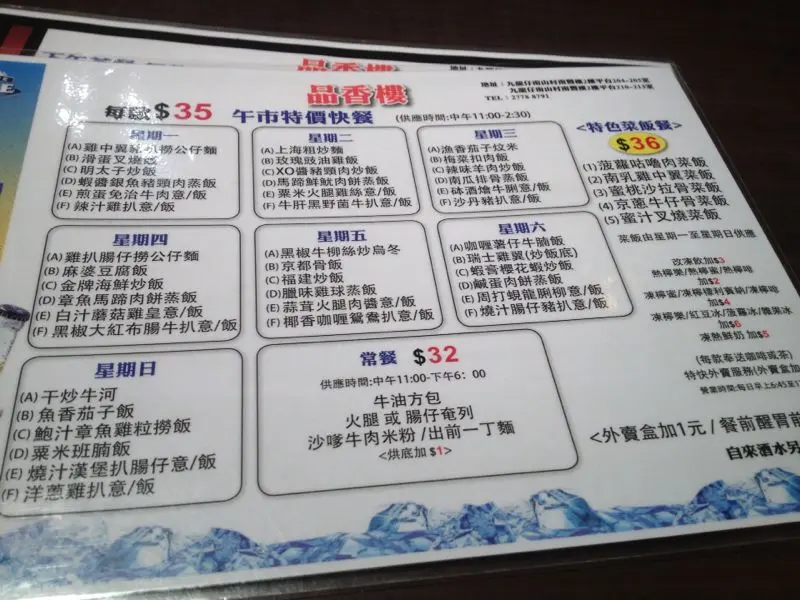 品香樓
地址：九龍仔南山村南豐樓2樓平台204-205室
九龍仔南山村南豐樓2樓平台210-213室
TEL: 2778 8791
每款$35 午市特價快餐 (供應時間:中午11:00-2:30)
星期一
(A)雞中翼
撈公仔麵
(B)滑蛋叉燒飯
(C)明太子炒飯
(D)蝦醬銀魚豬頸肉蒸飯
(E)煎蛋免治牛肉意/飯
(F)辣汁雞扒意/飯
星期二
(A)上海粗炒麵
(B)玫瑰豉油雞飯
(C)XO醬豬頸肉炒飯
(D)馬蹄鮮魷肉餅蒸飯
(E)粟米火腿雞絲意/飯
(F)牛肝黑野菌牛扒意/飯
星期三
(A)漁香茄子炆米
(B)梅菜扣肉飯
(C)辣味羊肉炒飯
(D)南瓜排骨蒸飯
(E)砵酒燴牛脷意/飯
(F)沙丹豬扒意/飯
星期四
(A)雞扒腸仔撈公仔麵
(B)麻婆豆腐飯
(C)金牌海鮮炒飯
(D)章魚馬蹄肉餅蒸飯
(E)白汁蘑菇雞皇意/飯
(F)黑椒大紅布腸牛扒意/飯
星期五
(A)黑椒牛柳絲炒烏冬
(B)京都骨飯
(C)福建炒飯
(D)臘味雞球蒸飯
(E)蒜茸火腿肉醬意/飯
(F)椰香咖喱鴛鴦扒意/飯
星期六
(A)咖喱薯仔牛腩飯
(B)瑞士雞翼(炒飯底)
(C)蝦膏櫻花蝦炒飯
(D)鹹蛋肉餅蒸飯
(E)周打蜆龍脷柳意/飯
(F)燒汁腸仔豬扒意/飯
星期日
(A)干炒牛河
(B)魚香茄子飯
(C)鮑汁章魚雞粒撈飯
(D)粟米班腩飯
(E)燒汁漢堡扒腸仔意/飯
(F)洋蔥雞扒意/飯
常餐 $32
供應時間:中午11:00-下午6：00
牛油方包
火腿 或 腸仔奄列
沙嗲牛肉米粉 /出前一丁麵
<烘底加 $1>
<特色菜飯餐>
$36
(1)菠蘿咕嚕肉菜飯
(2)南乳雞中翼菜飯
(3)蜜桃沙拉骨菜飯
(4)京蔥牛仔骨菜飯
(5)蜜汁叉燒菜飯
菜飯由星期一至星期日供應
改凍飲加$3
熱檸樂/熱檸蜜/熱檸啡
加$2
凍檸蜜/凍檸檬利賓納/凍檸啡
加$4
凍檸樂/紅豆冰/菠蘿冰/雜果冰
加$6
凍熱鮮奶 加$5
(每款奉送咖啡或茶)
特快外賣服務(外賣盒加
營業時間:每日早上6:45至
<外賣盒加1元 / 餐前醒胃前
自來酒水另